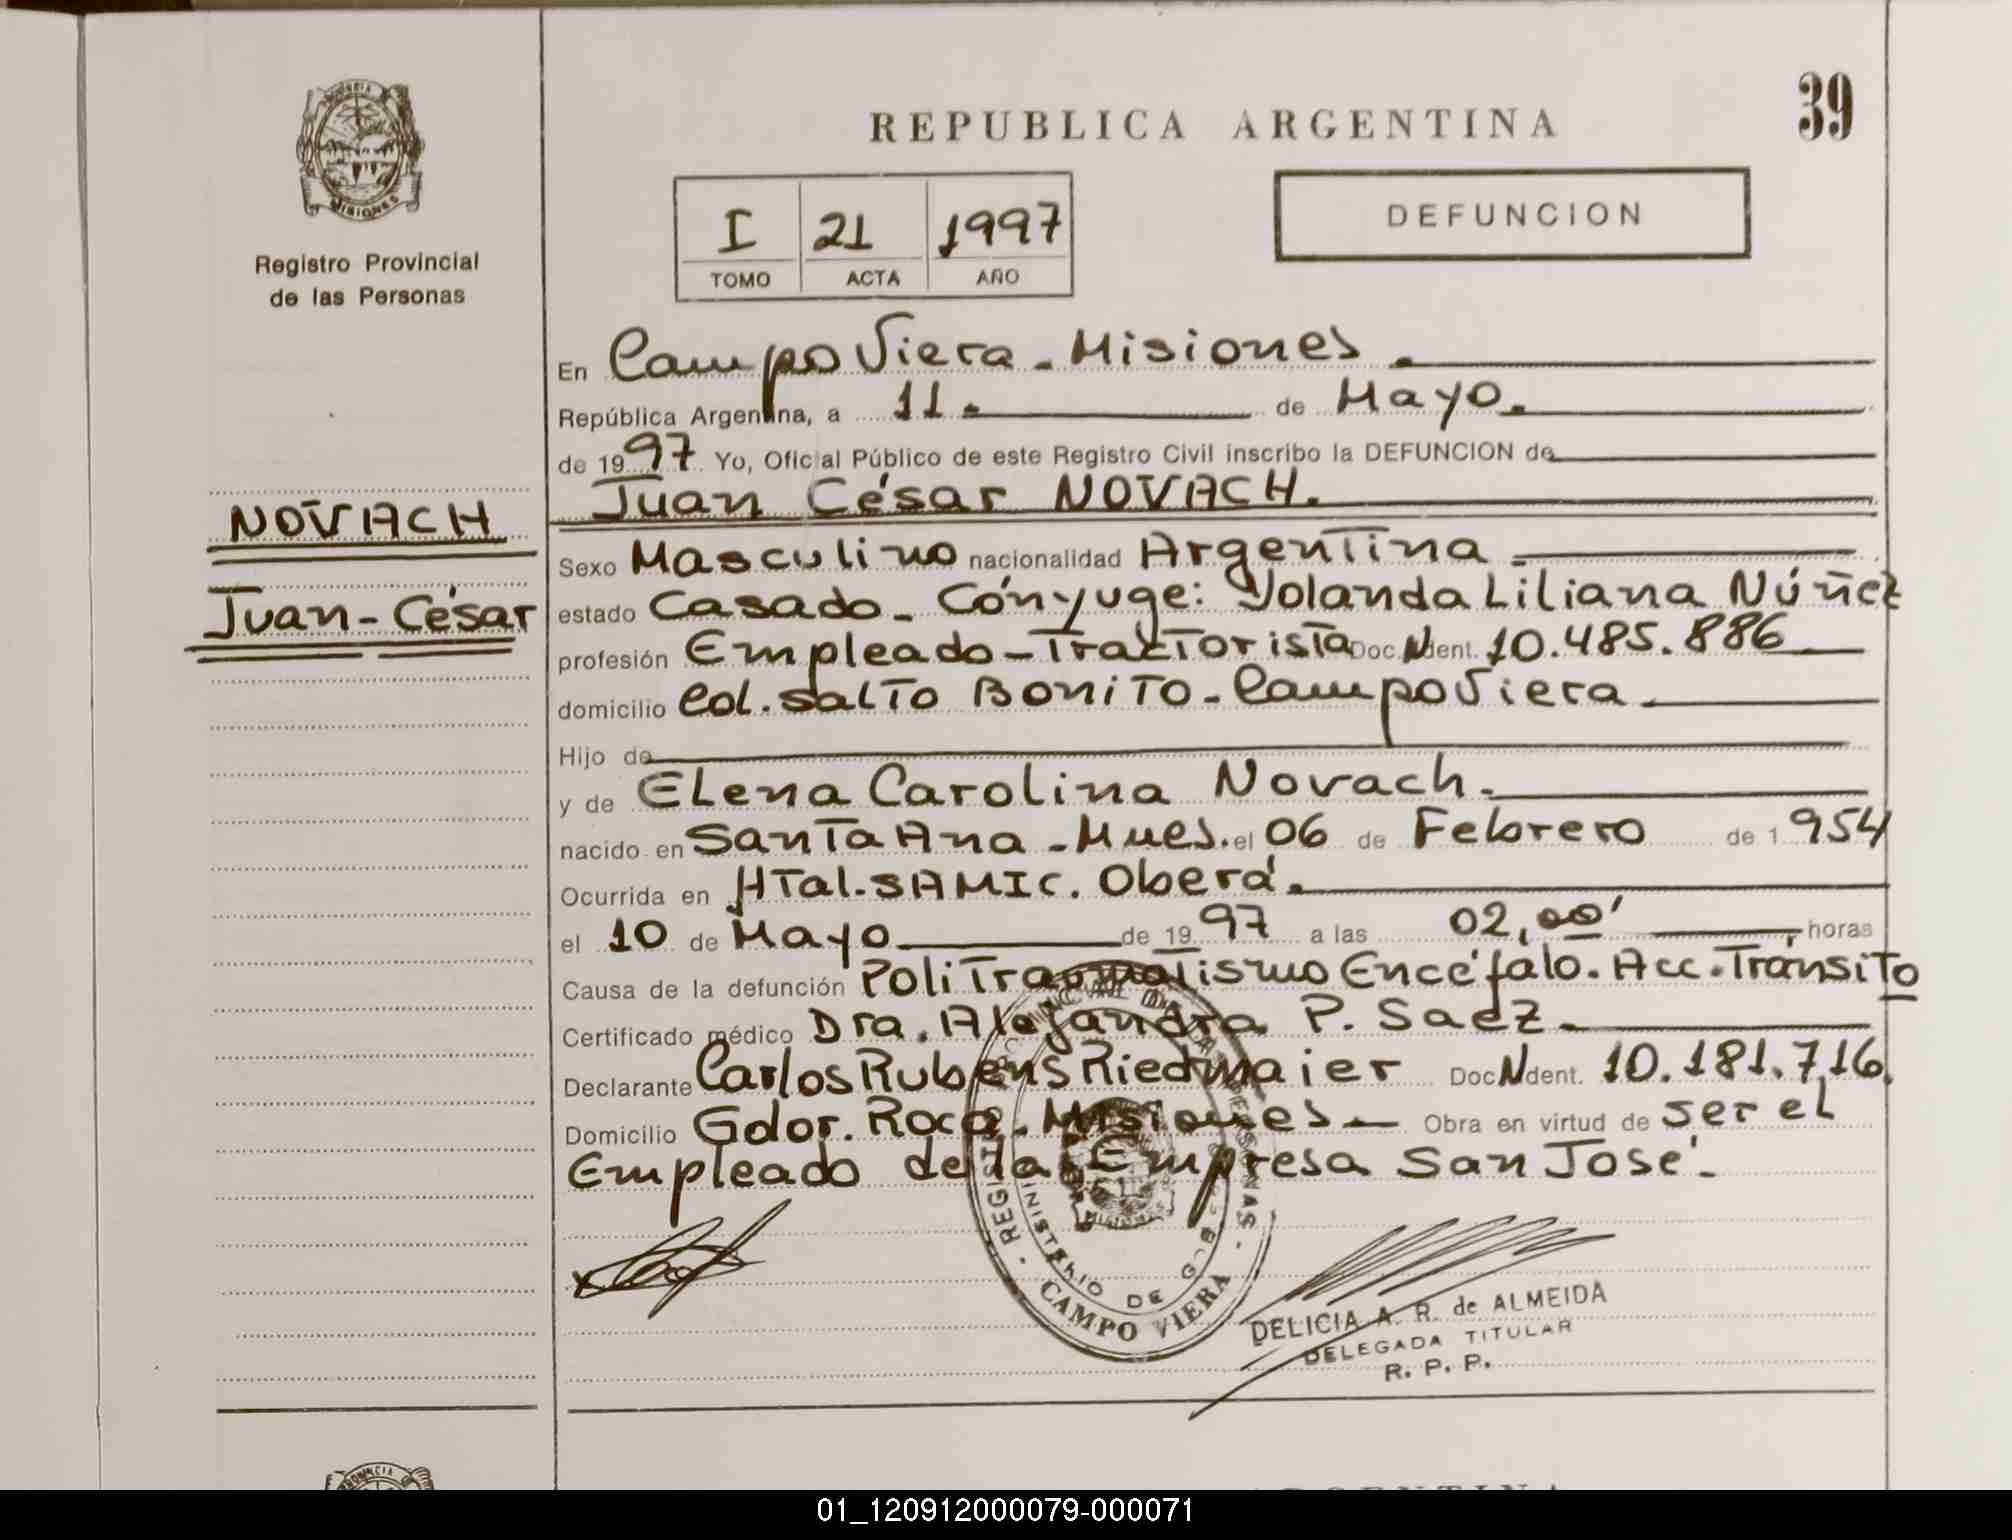 39
REPUBLICA ARGENTINA
PROVINCIA DE
MISIONES
Registro Provincial
de las Personas
I 21 1997
TOMO ACTA AÑO
DEFUNCION
En Campo Viera - Misiones.
República Argentina, a 11. de Mayo.
de 1997 Yo, Oficial Público de este Registro Civil inscribo la DEFUNCION de
Juan César NOVACH.
NOVACH
Juan - César
Sexo Masculino nacionalidad Argentina
estado Casado - Cónyuge: Yolanda Liliana Núñez
profesión Empleado - Tractorista Doc. N ident. 10.485.886
domicilio Col. Salto Bonito - Campo Viera
Hijo de
y de Elena Carolina Novach.
nacido en Santa Ana - Mnes. el 06 de Febrero de 1954
Ocurrida en HTal. SAMIC. Oberá.
el 10 de Mayo de 1997 a las 02,00' horas
Causa de la defunción Politraumatismo Encéfalo. Acc. Tránsito
Certificado médico Dra. Alejandra P. Saez.
Declarante Carlos Rubens Riedmaier Doc N ident. 10.181.716.
Domicilio Gdor. Roca. Misiones - Obra en virtud de ser el
Empleado de la Empresa San José.
MINISTERIO DE GOB
CAMPO VIERA
DELICIA A. R. de ALMEIDA
DELEGADA TITULAR
R. P. P.
01_120912000079-000071